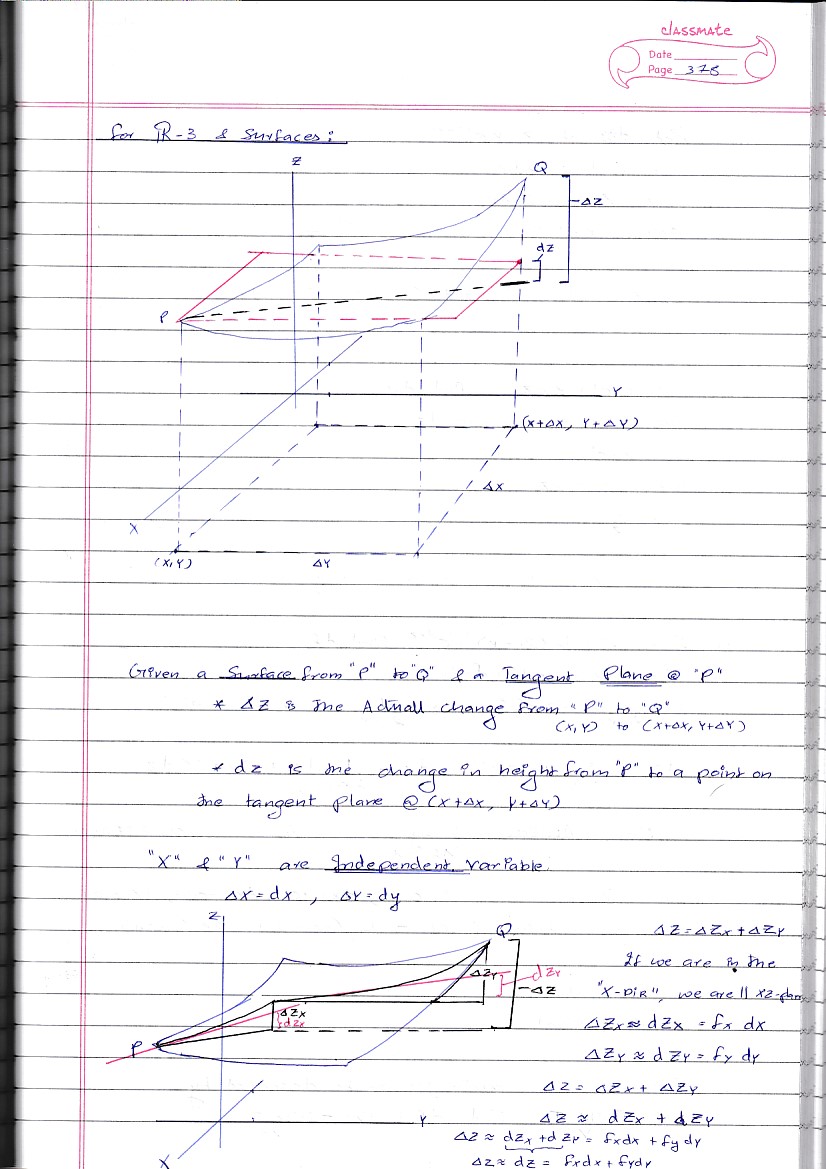 classmate
Date
Page 378
for R-3 & Surfaces:
Z
Q
ΔZ
dz
P
Y
(X+ΔX, Y+ΔY)
ΔX
X
(X,Y)
ΔY
Given a Surface from "P" to "Q" & a Tangent Plane @ "P"
* ΔZ is the Actuall change from "P" to "Q"
(X,Y) to (X+ΔX, Y+ΔY)
* dz is the change in height from "P" to a point on
the tangent plane @ (X+ΔX, Y+ΔY)
"X" & "Y" are Independent variable
ΔX = dx , ΔY = dy
Z
Q
ΔZY
dZY
ΔZ
ΔZX
dZX
P
Y
X
ΔZ = ΔZX + ΔZY
If we are in the
"X-DIR", we are || XZ-plane
ΔZX ≈ dZX = fx dx
ΔZY ≈ dZY = fy dy
ΔZ = ΔZX + ΔZY
ΔZ ≈ dZX + dZY
ΔZ ≈ dZX + dZY = fxdx + fydy
ΔZ ≈ dZ = fxdx + fydy